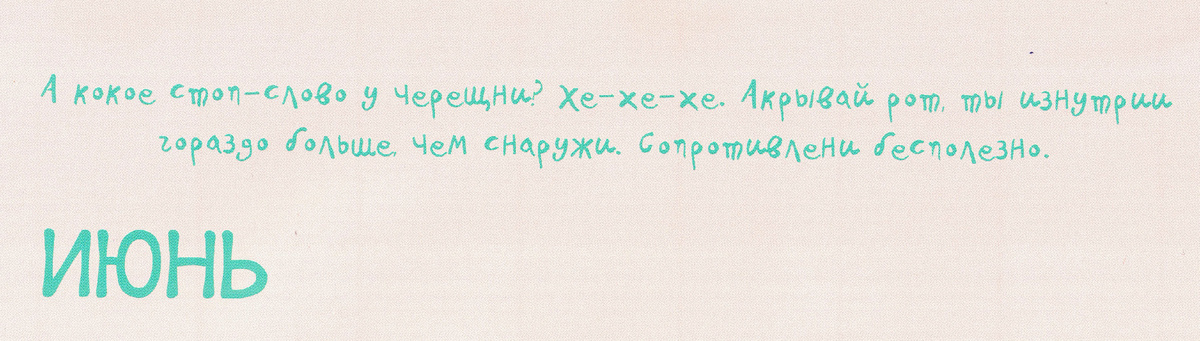 А кокое стоп-слово у черещни? Хе-хе-хе. Акрывай рот, ты изнутрии
гораздо больше, чем снаружи. Сопротивлени бесполезно.
ИЮНЬ